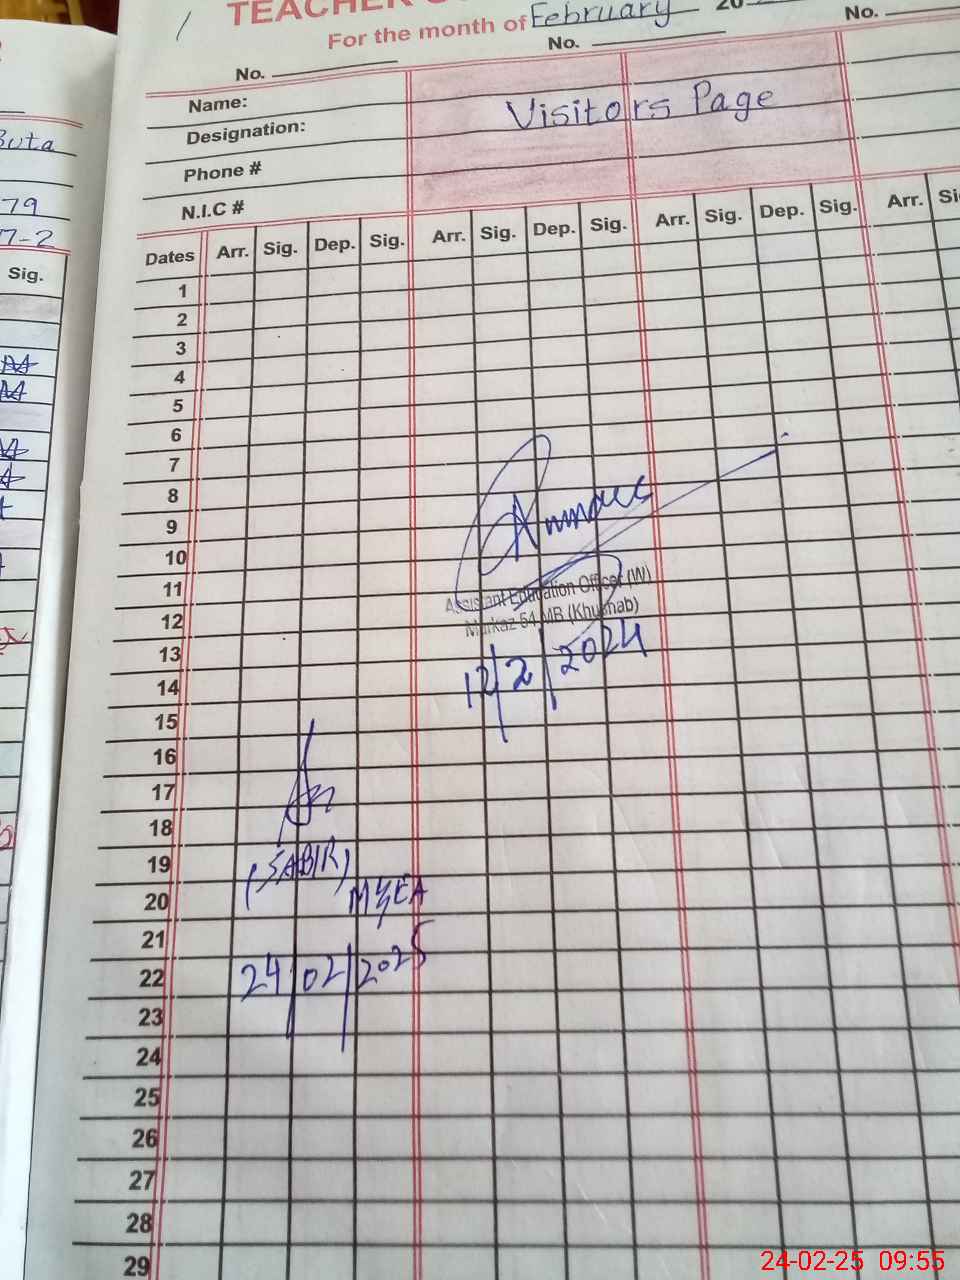 TEACHER
For the month of February 20
No. No. No.
Name:
Visitors Page
Designation:
Phone #
N.I.C #
Dates Arr. Sig. Dep. Sig. Arr. Sig. Dep. Sig. Arr. Sig. Dep. Sig. Arr.
1
2
3
4
5
6
7
8
9
10
11
12
13
14
15
16
17
18
19
20
21
22
23
24
25
26
27
28
29
Assistant Education Officer (W)
Markaz 54 MB (Khushab)
12/2/2024
(SABIR)
24/02/2025
79
7-2
Sig.
24-02-25 09:55